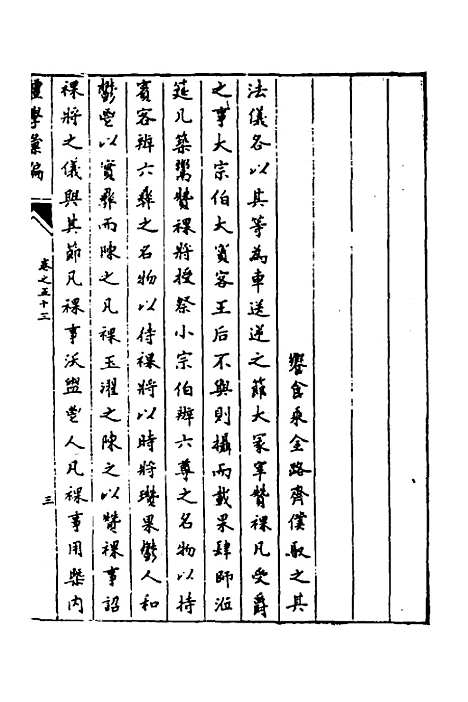 饗食乘金路齊僕馭之其
法儀各以其等為車送逆之節大冢宰贊祼凡受爵
之事大宗伯大賓客王后不與則攝而載果肆師涖
筵几築鬻贊祼將授祭小宗伯辨六尊之名物以待
賓客辨六彝之名物以待祼將以時將瓚果鬱人和
鬱鬯以實彝而陳之凡祼玉濯之陳之以贊祼事詔
祼將之儀與其節凡祼事沃盥鬯人凡祼事用概内
禮學彙編
卷之五十三
三